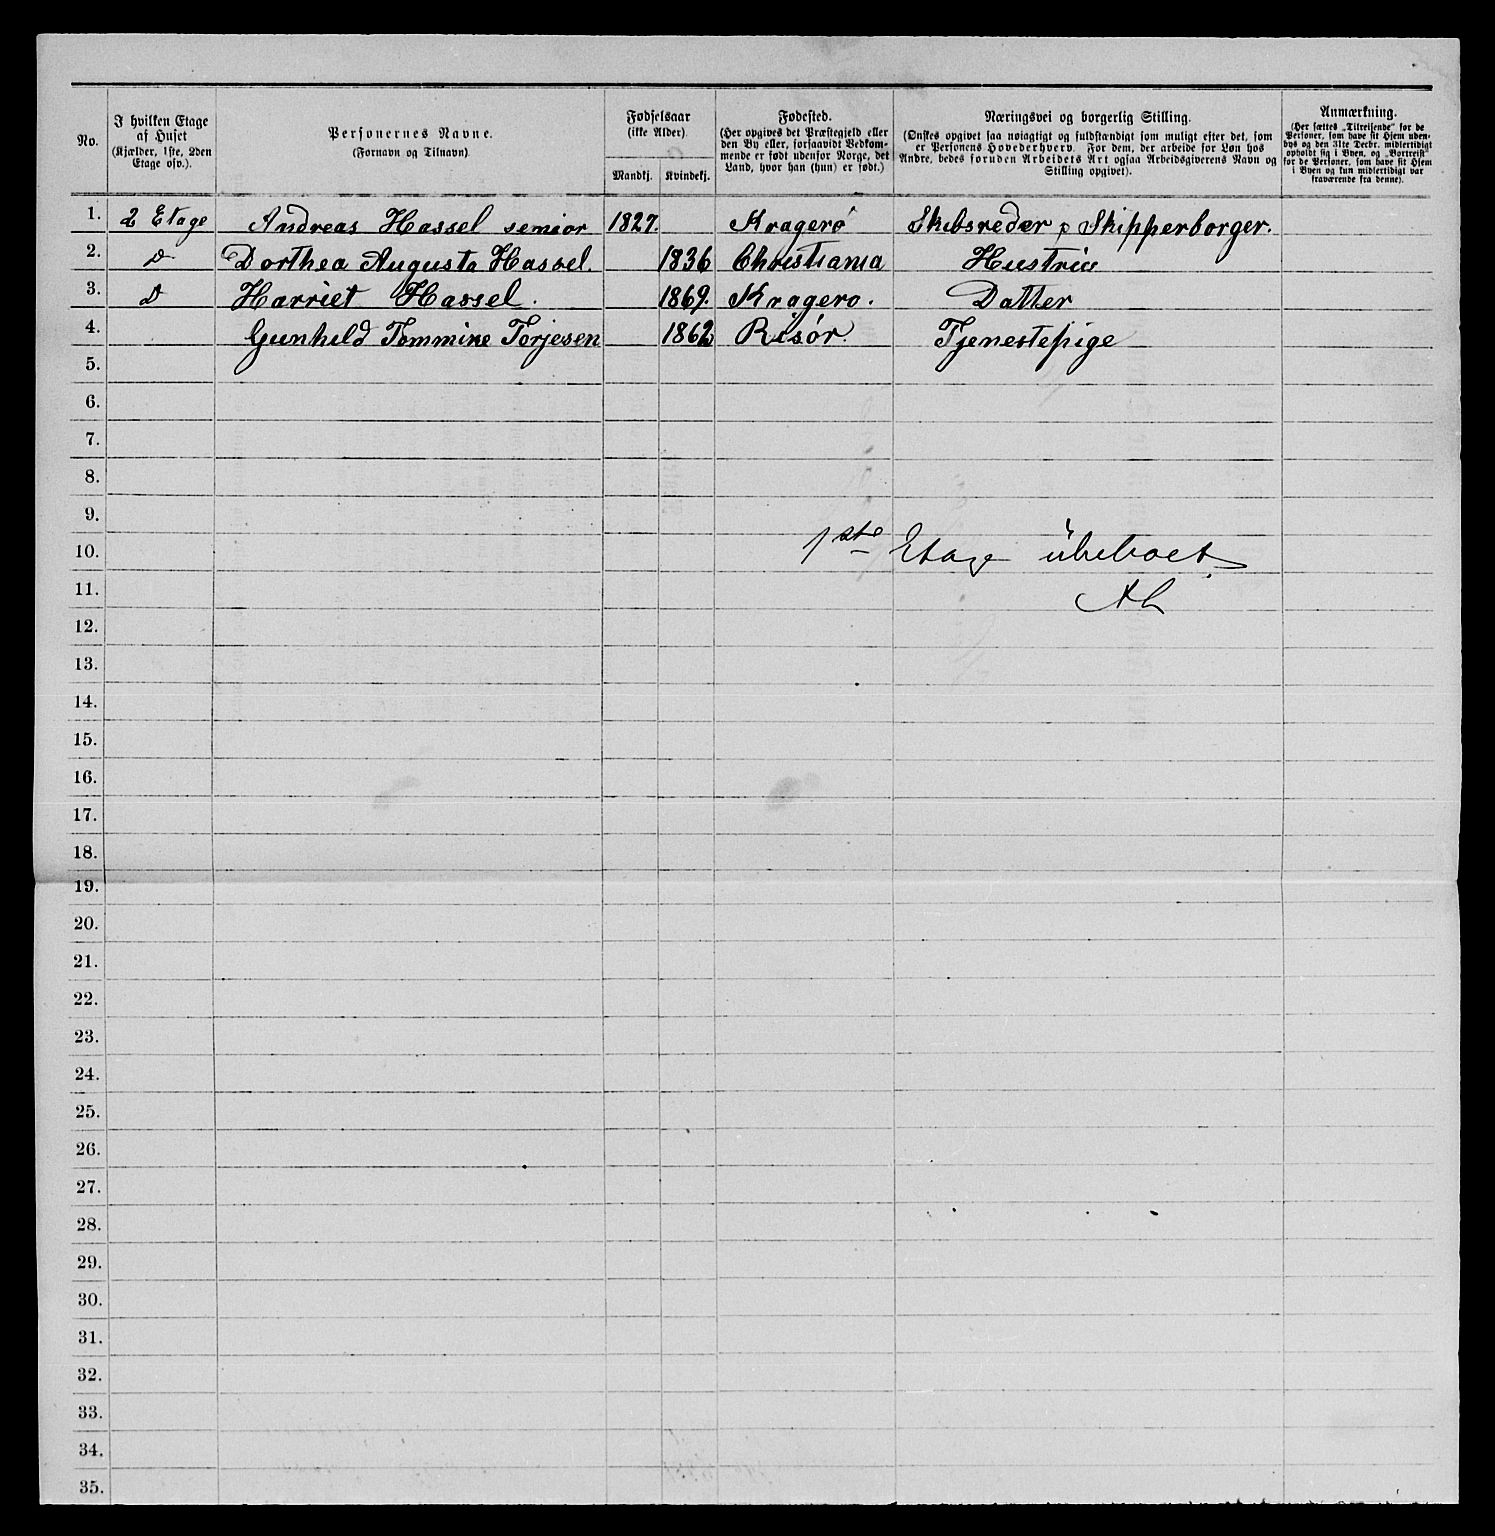 No.
I hvilken Etage
af Huset
(Kjælder, 1ste, 2den
Etage osv.).
Personernes Navne.
(Fornavn og Tilnavn).
Fødselsaar
(ikke Alder).
Mandkj. Kvindekj.
Fødested.
(Her opgives det Præstegjeld eller
den By eller, forsaavidt Vedkom-
mende er født udenfor Norge, det
Land, hvor han (hun) er født.)
Næringsvei og borgerlig Stilling.
(Ønskes opgivet saa nøiagtigt og fuldstændigt som muligt efter det, som
er Personens Hovederhverv. For dem, der arbeide for Løn hos
Andre, bedes foruden Arbeidets Art ogsaa Arbeidsgiverens Navn og
Stilling opgivet).
Anmærkning.
(Her sættes „Tilreisende“ for de
Personer, som have sit Hjem uden-
bys og den 31te Decbr. midlertidigt
opholdt sig i Byen, og „Bortreist“
for de Personer, som have sit Hjem
i Byen og kun midlertidigt var
fraværende fra denne).
1. 2 Etage Andreas Hassel senior 1827. Kragerø Skibsreder & Skipperborger.
2. D Dorthea Augusta Hassel. 1836 Christiania Hustrue
3. D Harriet Hassel. 1869. Kragerø. Datter
4. Gunhild Tommine Torjesen 1862 Risør. Tjenestepige
5.
6.
7.
8.
9.
10. 1ste Etage ubeboet.
11. AH
12.
13.
14.
15.
16.
17.
18.
19.
20.
21.
22.
23.
24.
25.
26.
27.
28.
29.
30.
31.
32.
33.
34.
35.